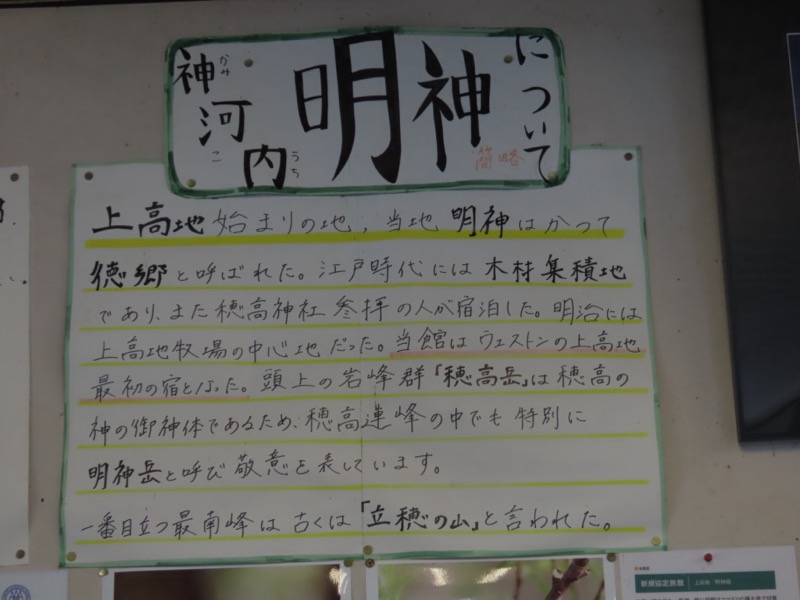 神河内 明神 について
かみ こ うち
簡略
上高地 始まりの地, 当地 明神はかつて
徳郷と呼ばれた。江戸時代には木材集積地
であり、また穂高神社参拝の人が宿泊した。明治には
上高地牧場の中心地だった。当館はウェストンの上高地
最初の宿となった。頭上の岩峰群「穂高岳」は穂高の
神の御神体であるため、穂高連峰の中でも特別に
明神岳と呼び敬意を表しています。
一番目立つ最南峰は古くは「立穂の山」と言われた。
新規協定旅館
上高地 明神館